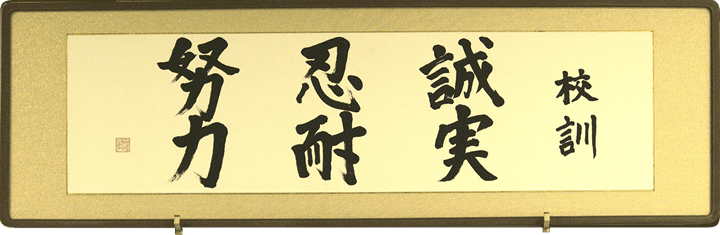 校訓
誠実
忍耐
努力